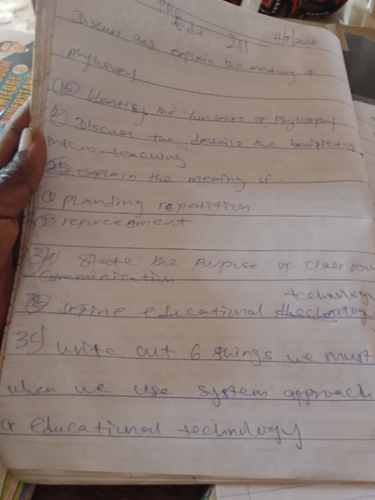 Edu 211
Discuss and explain the meaning of
phylosophy
(1b) Identify the functions of phylosophy
2) Discuss the describe the
micro teaching
2b explain the meaning of.
① planding repeatition
② reforcement
3a) State the purpose of class room
Communication
technology
3b) Define educational
3c) write out 6 things we must
when we use system approach
or educational technology